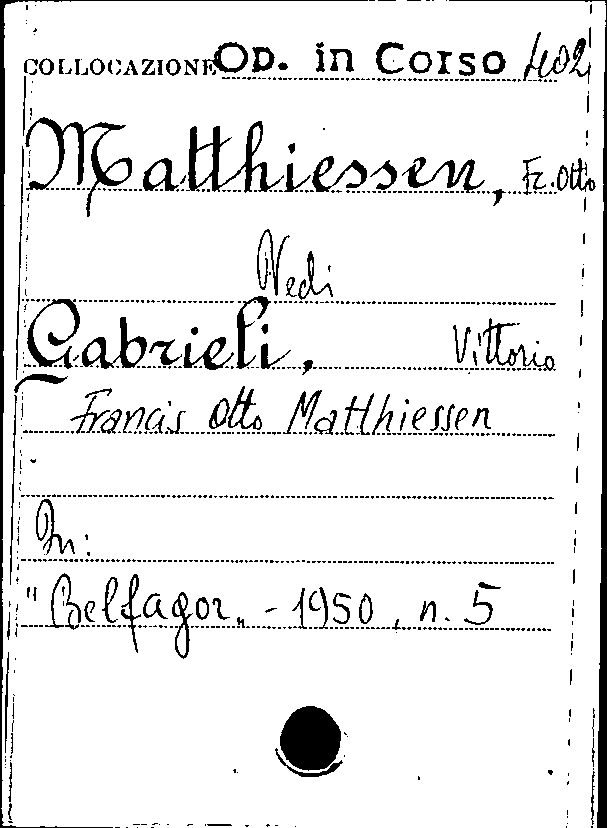 COLLOCAZIONE OD. in Corso 402
Matthiessen, Fr. Otto
Vedi
Gabrieli, Vittorio
Francis Otto Matthiessen
In:
"Belfagor„ - 1950, n. 5